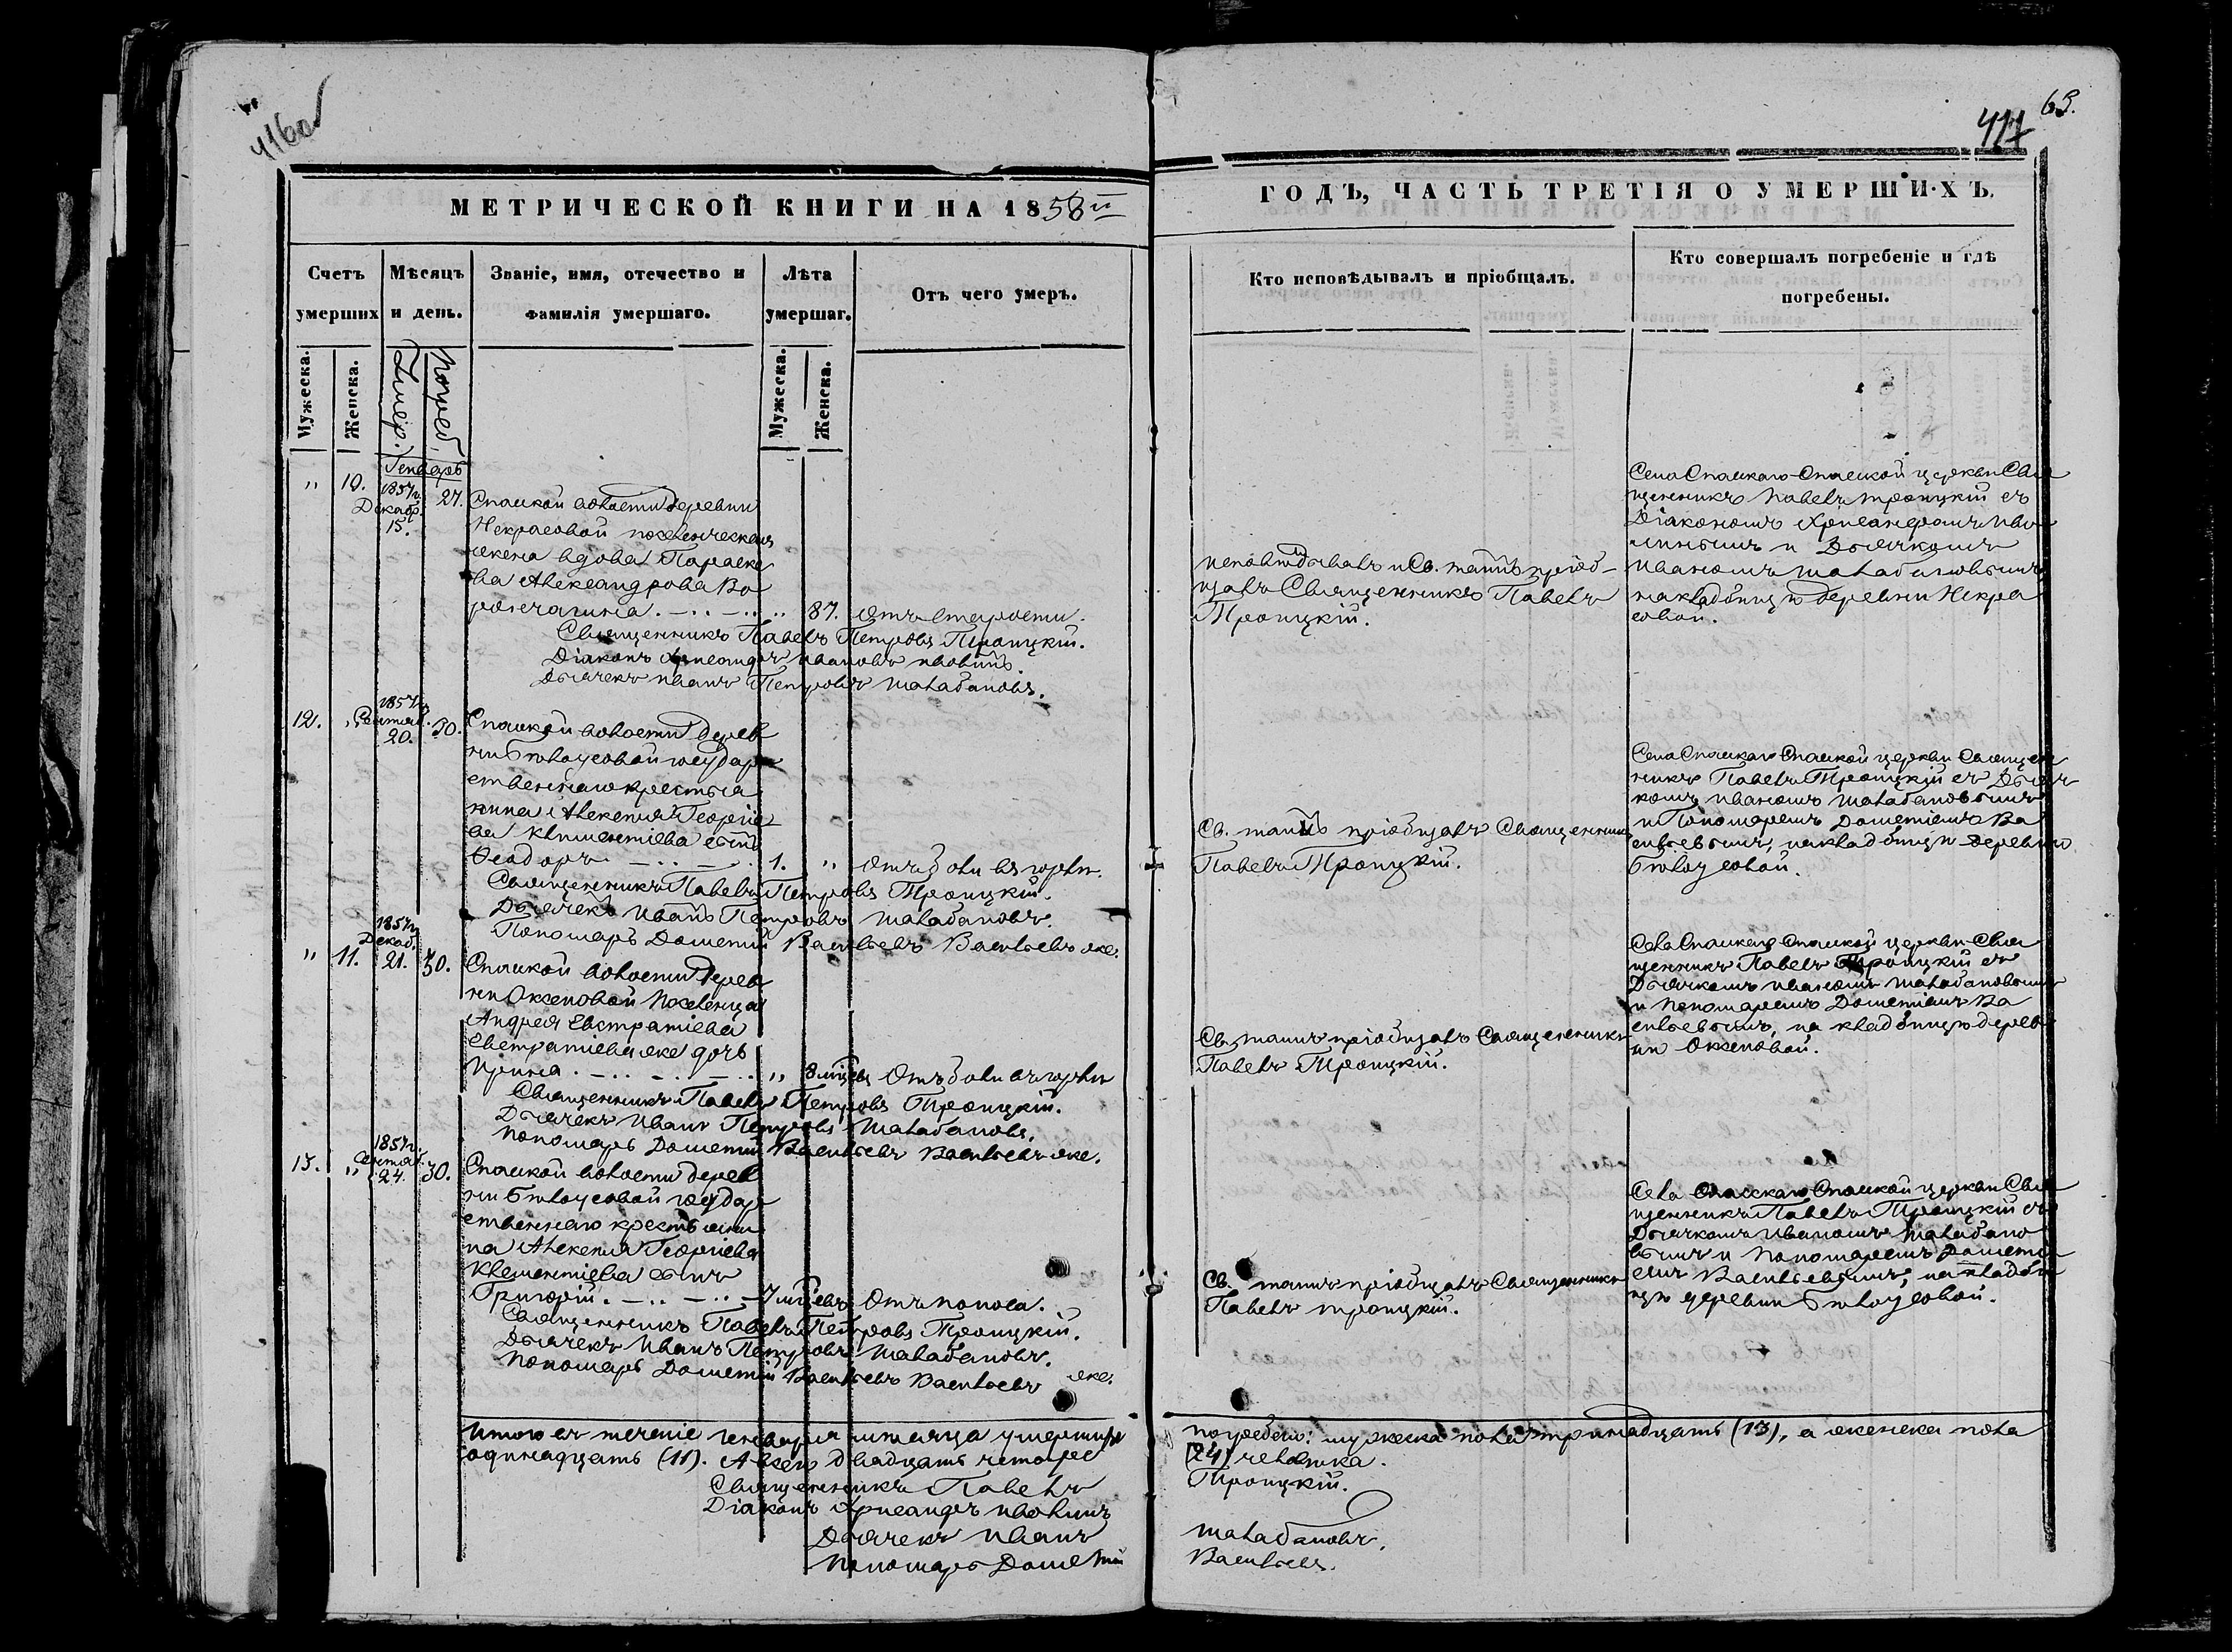 416об
63.
417
МЕТРИЧЕСКОЙ КНИГИ НА 1858й
ГОДЪ, ЧАСТЬ ТРЕТІЯ О УМЕРШИХЪ.
Счетъ умерших
Мѣсяцъ и день.
Званіе, имя, отечество и фамилія умершаго.
Лѣта умершаг.
Отъ чего умеръ.
Кто исповѣдывалъ и пріобщалъ.
Кто совершалъ погребеніе и гдѣ погребены.
Мужеска.
Женска.
Умер.
Погреб.
Мужеска.
Женска.
Генварь
" 10. 1857г. Декабр. 15. 27.
Спаской волости деревни
Некрасовой поселенческая
жена вдова Параске
ва Александрова Во
рончагина " 87. отъ старости.
Священникъ Павелъ Петровъ Троицкій.
Діаконъ Хрисанфъ Ивановъ Иволинъ.
Дьячекъ Иванъ Петровъ Шалабановъ.
исповѣдывалъ и Св. таинъ пріоб-
щалъ Священникъ Павелъ
Троицкій.
Села Спаскаго Спаской церкви Свя
щенникъ Павелъ Троицкій съ
Діакономъ Хрисанфомъ Иво
линымъ и Дьячкомъ
Иваномъ Шалабановымъ,
на кладбищѣ деревни Некра
совой.
12. " 1857г. Сентяб. 20. 30.
Спаской волости дерев
ни Бѣлоусовой государ
ственнаго крестья
нина Алексея Георгіе
ва Климентіева сынъ
Феодоръ 1. " Отъ боли въ горлѣ.
Священникъ Павелъ Петровъ Троицкій.
Дьячекъ Иванъ Петровъ Шалабановъ.
Пономарь Дометій Васильевъ Васильевъ же.
Св. таинъ пріобщалъ Священникъ
Павелъ Троицкій.
Села Спаскаго Спаской церкви Священ
никъ Павелъ Троицкій съ Дьяч
комъ Иваномъ Шалабановымъ
и Пономаремъ Дометіемъ Ва
сильевымъ, на кладбищѣ деревни
Бѣлоусовой.
" 11. 1857г. Декаб. 21. 30.
Спаской волости дерев
ни Оксеновой Поселенца
Андрея Евстратіева
Евстратіева же дочь
Ирина " 8 мѣсяц. Отъ боли въ горлѣ
Священникъ Павелъ Петровъ Троицкій.
Дьячекъ Иванъ Петровъ Шалабановъ.
Пономарь Дометій Васильевъ Васильевъ же.
Св. таинъ пріобщалъ Священникъ
Павелъ Троицкій.
Села Спаскаго Спаской церкви Свя
щенникъ Павелъ Троицкій съ
Дьячкомъ Иваномъ Шалабановымъ
и Пономаремъ Дометіемъ Ва
сильевымъ, на кладбищѣ дерев
ни Оксеновой.
13. " 1857г. Сентяб. 24. 30.
Спаской волости дерев
ни Бѣлоусовой государ
ственнаго крестьяни
на Алексея Георгіева
Климентіева сынъ
Григорій. 7 мѣсяцевъ Отъ поноса.
Священникъ Павелъ Петровъ Троицкій.
Дьячекъ Иванъ Петровъ Шалабановъ.
Пономарь Дометій Васильевъ Васильевъ же.
Св. таинъ пріобщалъ Священникъ
Павелъ Троицкій.
Села Спасскаго Спаской церкви Свя
щенникъ Павелъ Троицкій съ
Дьячкомъ Иваномъ Шалабано
вымъ и Пономаремъ Дометі
емъ Васильевымъ, на кладби
щѣ деревни Бѣлоусовой.
Итого въ теченіе Генваря мѣсяца умершихъ погребено: мужеска пола тринадцать (13), а женска пола
одинадцать (11). А всего двадцать четыре (24) человѣка.
Священникъ Павелъ Троицкій.
Діаконъ Хрисанфъ Иволинъ
Дьячекъ Иванъ Шалабановъ.
Пономарь Дометій Васильевъ.